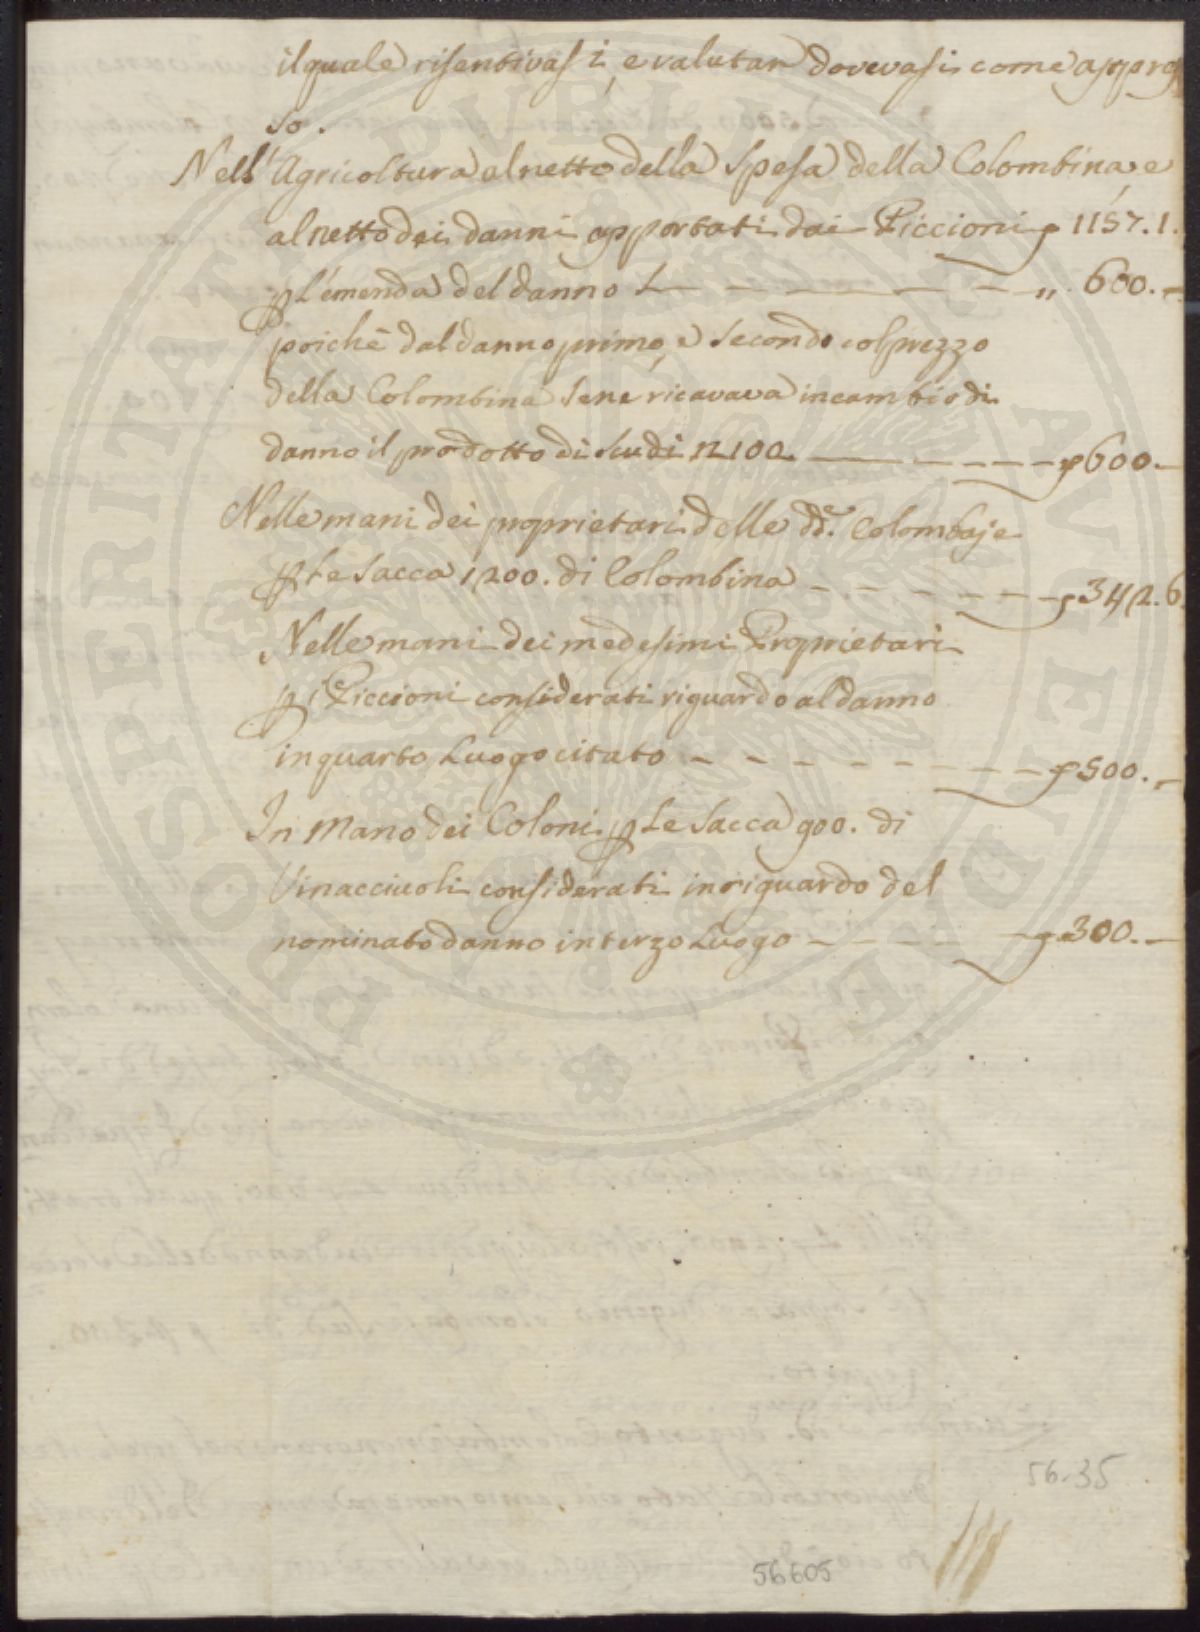 il quale risentivasi, e valutar dovevasi come appres
so.
Nell'Agricoltura al netto della Spesa della Colombina, e
al netto dei danni apportati dai Piccioni p 1157.1.
p l'emenda del danno L — — — — — — — „ 600. —
poichè dal danno primo, e secondo col prezzo
della Colombina se ne ricavava in cambio di
danno il prodotto di scudi 12100. — — — — p 600. —
Nelle mani dei proprietari delle dd.e Colombaje
p le Sacca 1200. di Colombina — — — — — p 342.6.
Nelle mani dei medesimi Proprietari
p i Piccioni considerati riguardo al danno
in quarto Luogo citato — — — — — — — p 500. —
In Mano dei Coloni p le Sacca 900. di
Vinacciuoli considerati in riguardo del
nominato danno in terzo Luogo — — — — p 300. —
56.35
56605
PROSPERITATI PUBLICAE AUGENDAE